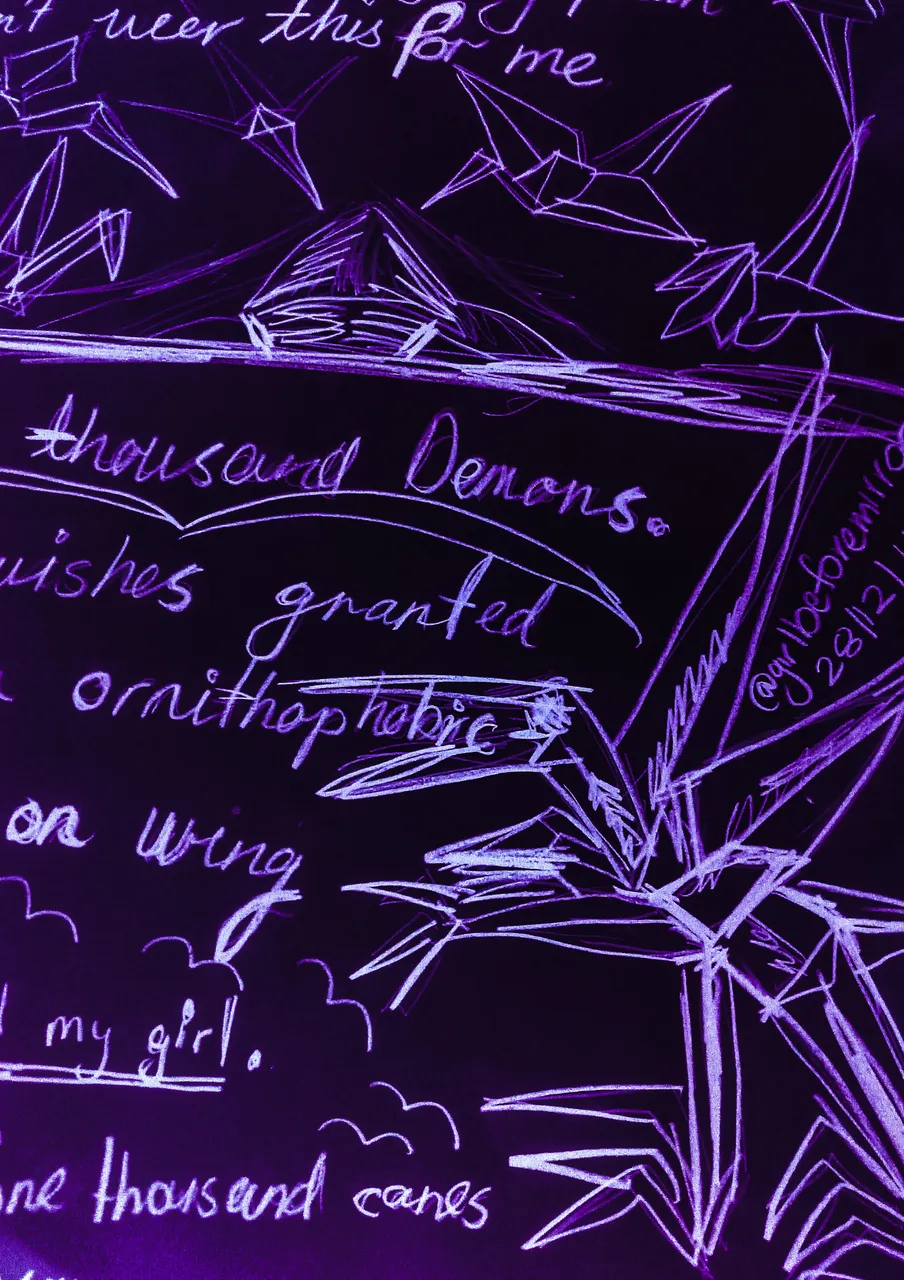 this for me
thousand Demons.
wishes granted
ornithophobic
on wing
my girl.
one thousand canes
@girlbeforemirro
28/12/1